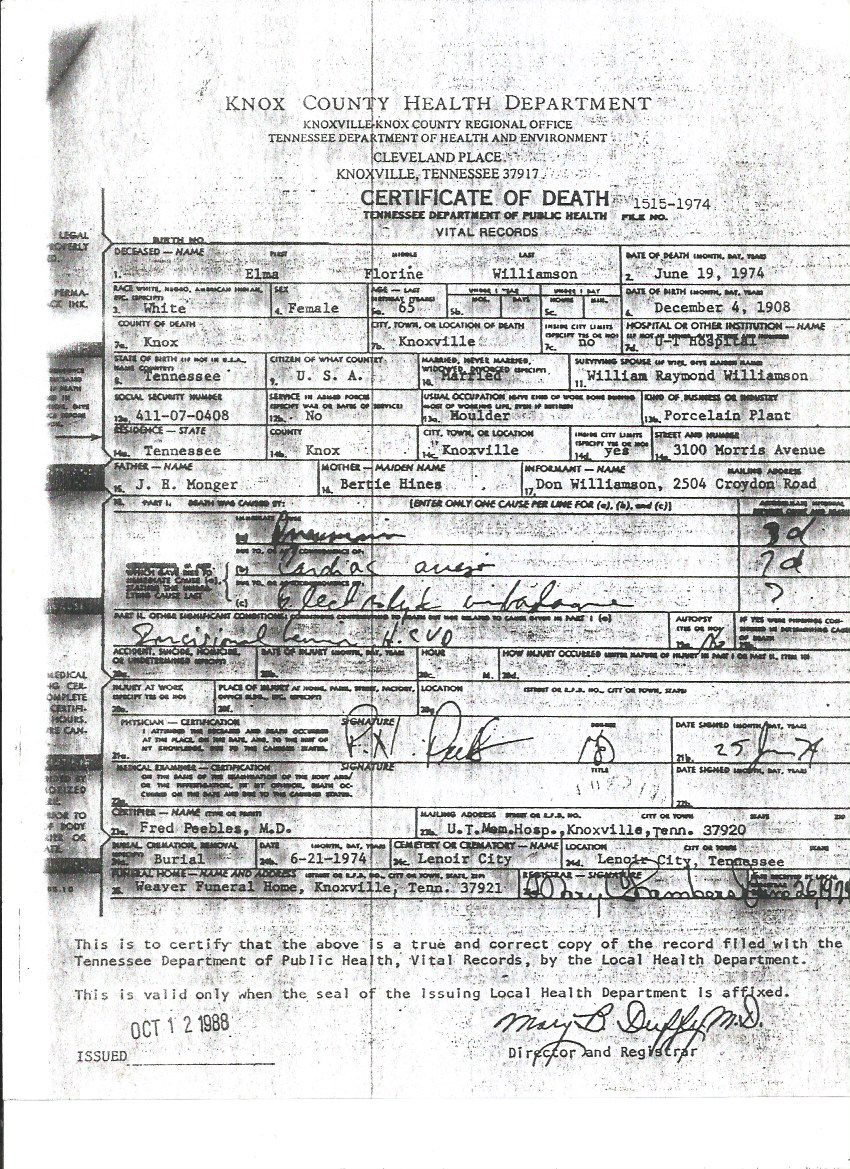 KNOX COUNTY HEALTH DEPARTMENT
KNOXVILLE-KNOX COUNTY REGIONAL OFFICE
TENNESSEE DEPARTMENT OF HEALTH AND ENVIRONMENT
CLEVELAND PLACE
KNOXVILLE, TENNESSEE 37917
CERTIFICATE OF DEATH 1515-1974
TENNESSEE DEPARTMENT OF PUBLIC HEALTH FILE NO.
VITAL RECORDS
LEGAL
BIRTH NO.
DECEASED — NAME FIRST MIDDLE LAST DATE OF DEATH (MONTH, DAY, YEAR)
1. Elma Florine Williamson 2. June 19, 1974
PERMA-
RACE WHITE, NEGRO, AMERICAN INDIAN, ETC. (SPECIFY) SEX AGE — LAST BIRTHDAY (YEARS) UNDER 1 YEAR UNDER 1 DAY DATE OF BIRTH (MONTH, DAY, YEAR)
CK INK.
3. White 4. Female 5a. 65 5b. MOS. DAYS 5c. HOURS MIN. 6. December 4, 1908
COUNTY OF DEATH CITY, TOWN, OR LOCATION OF DEATH INSIDE CITY LIMITS (SPECIFY YES OR NO) HOSPITAL OR OTHER INSTITUTION — NAME
7a. Knox 7b. Knoxville no 7d. U-T Hospital
STATE OF BIRTH (IF NOT IN U.S.A., NAME COUNTRY) CITIZEN OF WHAT COUNTRY MARRIED, NEVER MARRIED, WIDOWED, DIVORCED (SPECIFY) SURVIVING SPOUSE (IF WIFE, GIVE MAIDEN NAME)
8. Tennessee 9. U. S. A. 10. Married 11. William Raymond Williamson
SOCIAL SECURITY NUMBER SERVICE IN ARMED FORCES (SPECIFY WAR OR DATES OF SERVICE) USUAL OCCUPATION (GIVE KIND OF WORK DONE DURING MOST OF WORKING LIFE, EVEN IF RETIRED) KIND OF BUSINESS OR INDUSTRY
12a. 411-07-0408 12b. No 13a. Moulder 13b. Porcelain Plant
RESIDENCE — STATE COUNTY CITY, TOWN, OR LOCATION INSIDE CITY LIMITS (SPECIFY YES OR NO) STREET AND NUMBER
14a. Tennessee 14b. Knox 14c. Knoxville 14d. yes 14e. 3100 Morris Avenue
FATHER — NAME MOTHER — MAIDEN NAME INFORMANT — NAME MAILING ADDRESS
15. J. H. Monger 16. Bertie Hines 17. Don Williamson, 2504 Croydon Road
18. PART I. DEATH WAS CAUSED BY: [ENTER ONLY ONE CAUSE PER LINE FOR (a), (b), and (c)]
IMMEDIATE CAUSE
(a) Pneumonia 3d
DUE TO, OR AS A CONSEQUENCE OF:
(b) Cardiac arrest ?d
DUE TO, OR AS A CONSEQUENCE OF:
(c) Electrolyte ?
PART II. OTHER SIGNIFICANT CONDITIONS: CONDITIONS CONTRIBUTING TO DEATH BUT NOT RELATED TO CAUSE GIVEN IN PART I (a) AUTOPSY (YES OR NO)
Incisional hernia H.CVD 19a. No
ACCIDENT, SUICIDE, HOMICIDE, OR UNDETERMINED (SPECIFY) DATE OF INJURY (MONTH, DAY, YEAR) HOUR HOW INJURY OCCURRED (ENTER NATURE OF INJURY IN PART I OR PART II, ITEM 18)
MEDICAL
20a. 20b. 20c. M. 20d.
INJURY AT WORK (SPECIFY YES OR NO) PLACE OF INJURY AT HOME, FARM, STREET, FACTORY, OFFICE BLDG., ETC. (SPECIFY) LOCATION (STREET OR R.F.D. NO., CITY OR TOWN, STATE)
20e. 20f. 20g.
PHYSICIAN — CERTIFICATION SIGNATURE DEGREE DATE SIGNED (MONTH, DAY, YEAR)
I ATTENDED THE DECEASED AND DEATH OCCURRED AT THE PLACE, ON THE DATE, AND, TO THE BEST OF MY KNOWLEDGE, DUE TO THE CAUSES STATED.
21a. 21b. 25 Jun 74
MEDICAL EXAMINER — CERTIFICATION SIGNATURE TITLE DATE SIGNED (MONTH, DAY, YEAR)
ON THE BASIS OF THE EXAMINATION OF THE BODY AND/OR THE INVESTIGATION, IN MY OPINION, DEATH OCCURRED ON THE DATE AND DUE TO THE CAUSES STATED.
22a. 22b.
CERTIFIER — NAME (TYPE OR PRINT) MAILING ADDRESS STREET OR R.F.D. NO. CITY OR TOWN STATE ZIP
23a. Fred Peebles, M.D. 23b. U.T.Mem.Hosp.,Knoxville,Tenn. 37920
BURIAL, CREMATION, REMOVAL DATE (MONTH, DAY, YEAR) CEMETERY OR CREMATORY — NAME LOCATION CITY OR TOWN STATE
24a. Burial 24b. 6-21-1974 24c. Lenoir City 24d. Lenoir City, Tennessee
FUNERAL HOME — NAME AND ADDRESS (STREET OR R.F.D. NO., CITY OR TOWN, STATE, ZIP) REGISTRAR — SIGNATURE
25. Weaver Funeral Home, Knoxville, Tenn. 37921
This is to certify that the above is a true and correct copy of the record filed with the
Tennessee Department of Public Health, Vital Records, by the Local Health Department.
This is valid only when the seal of the issuing Local Health Department is affixed.
OCT 12 1988
Mary B Duffy M.D.
ISSUED Director and Registrar